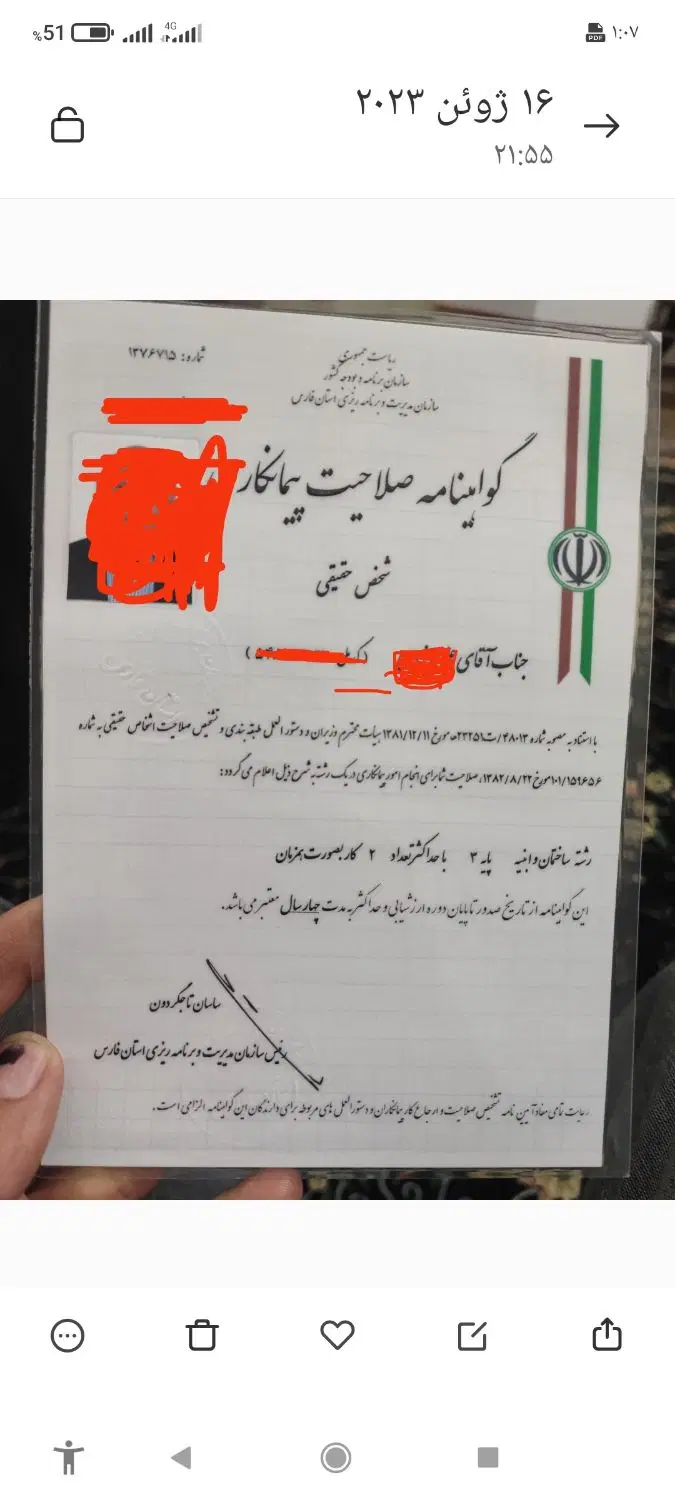 %51 4G ۱:۰۷
PDF
۱۶ ژوئن ۲۰۲۳
۲۱:۵۵
ریاست جمهوری
سازمان برنامه و بودجه کشور
سازمان مدیریت و برنامه ریزی استان فارس
شماره: ۱۳۷۶۷۱۵
گواهینامه صلاحیت پیمانکار
شخص حقیقی
جناب آقای
با استناد به مصوبه شماره ۴۸۰۱۳/ت۲۳۲۵۱ه مورخ ۱۳۸۱/۱۲/۱۱ هیات محترم وزیران و دستورالعمل طبقه بندی و تشخیص صلاحیت اشخاص حقیقی به شماره
۱۰۱/۱۵۹۶۵۶ مورخ ۱۳۸۲/۸/۲۲، صلاحیت شما برای انجام امور پیمانکاری در یک رشته به شرح ذیل اعلام می گردد:
رشته ساختمان و ابنیه پایه ۳ با حداکثر تعداد ۲ کار بصورت همزمان
این گواهینامه از تاریخ صدور تا پایان دوره ارزشیابی و حداکثر به مدت چهار سال معتبر می باشد.
ساسان تاجگردون
رئیس سازمان مدیریت و برنامه ریزی استان فارس
رعایت تمای مفاد آیین نامه تشخیص صلاحیت و ارجاع کار پیمانکاران و دستورالعمل های مربوطه برای دارندگان این گواهینامه الزامی است.